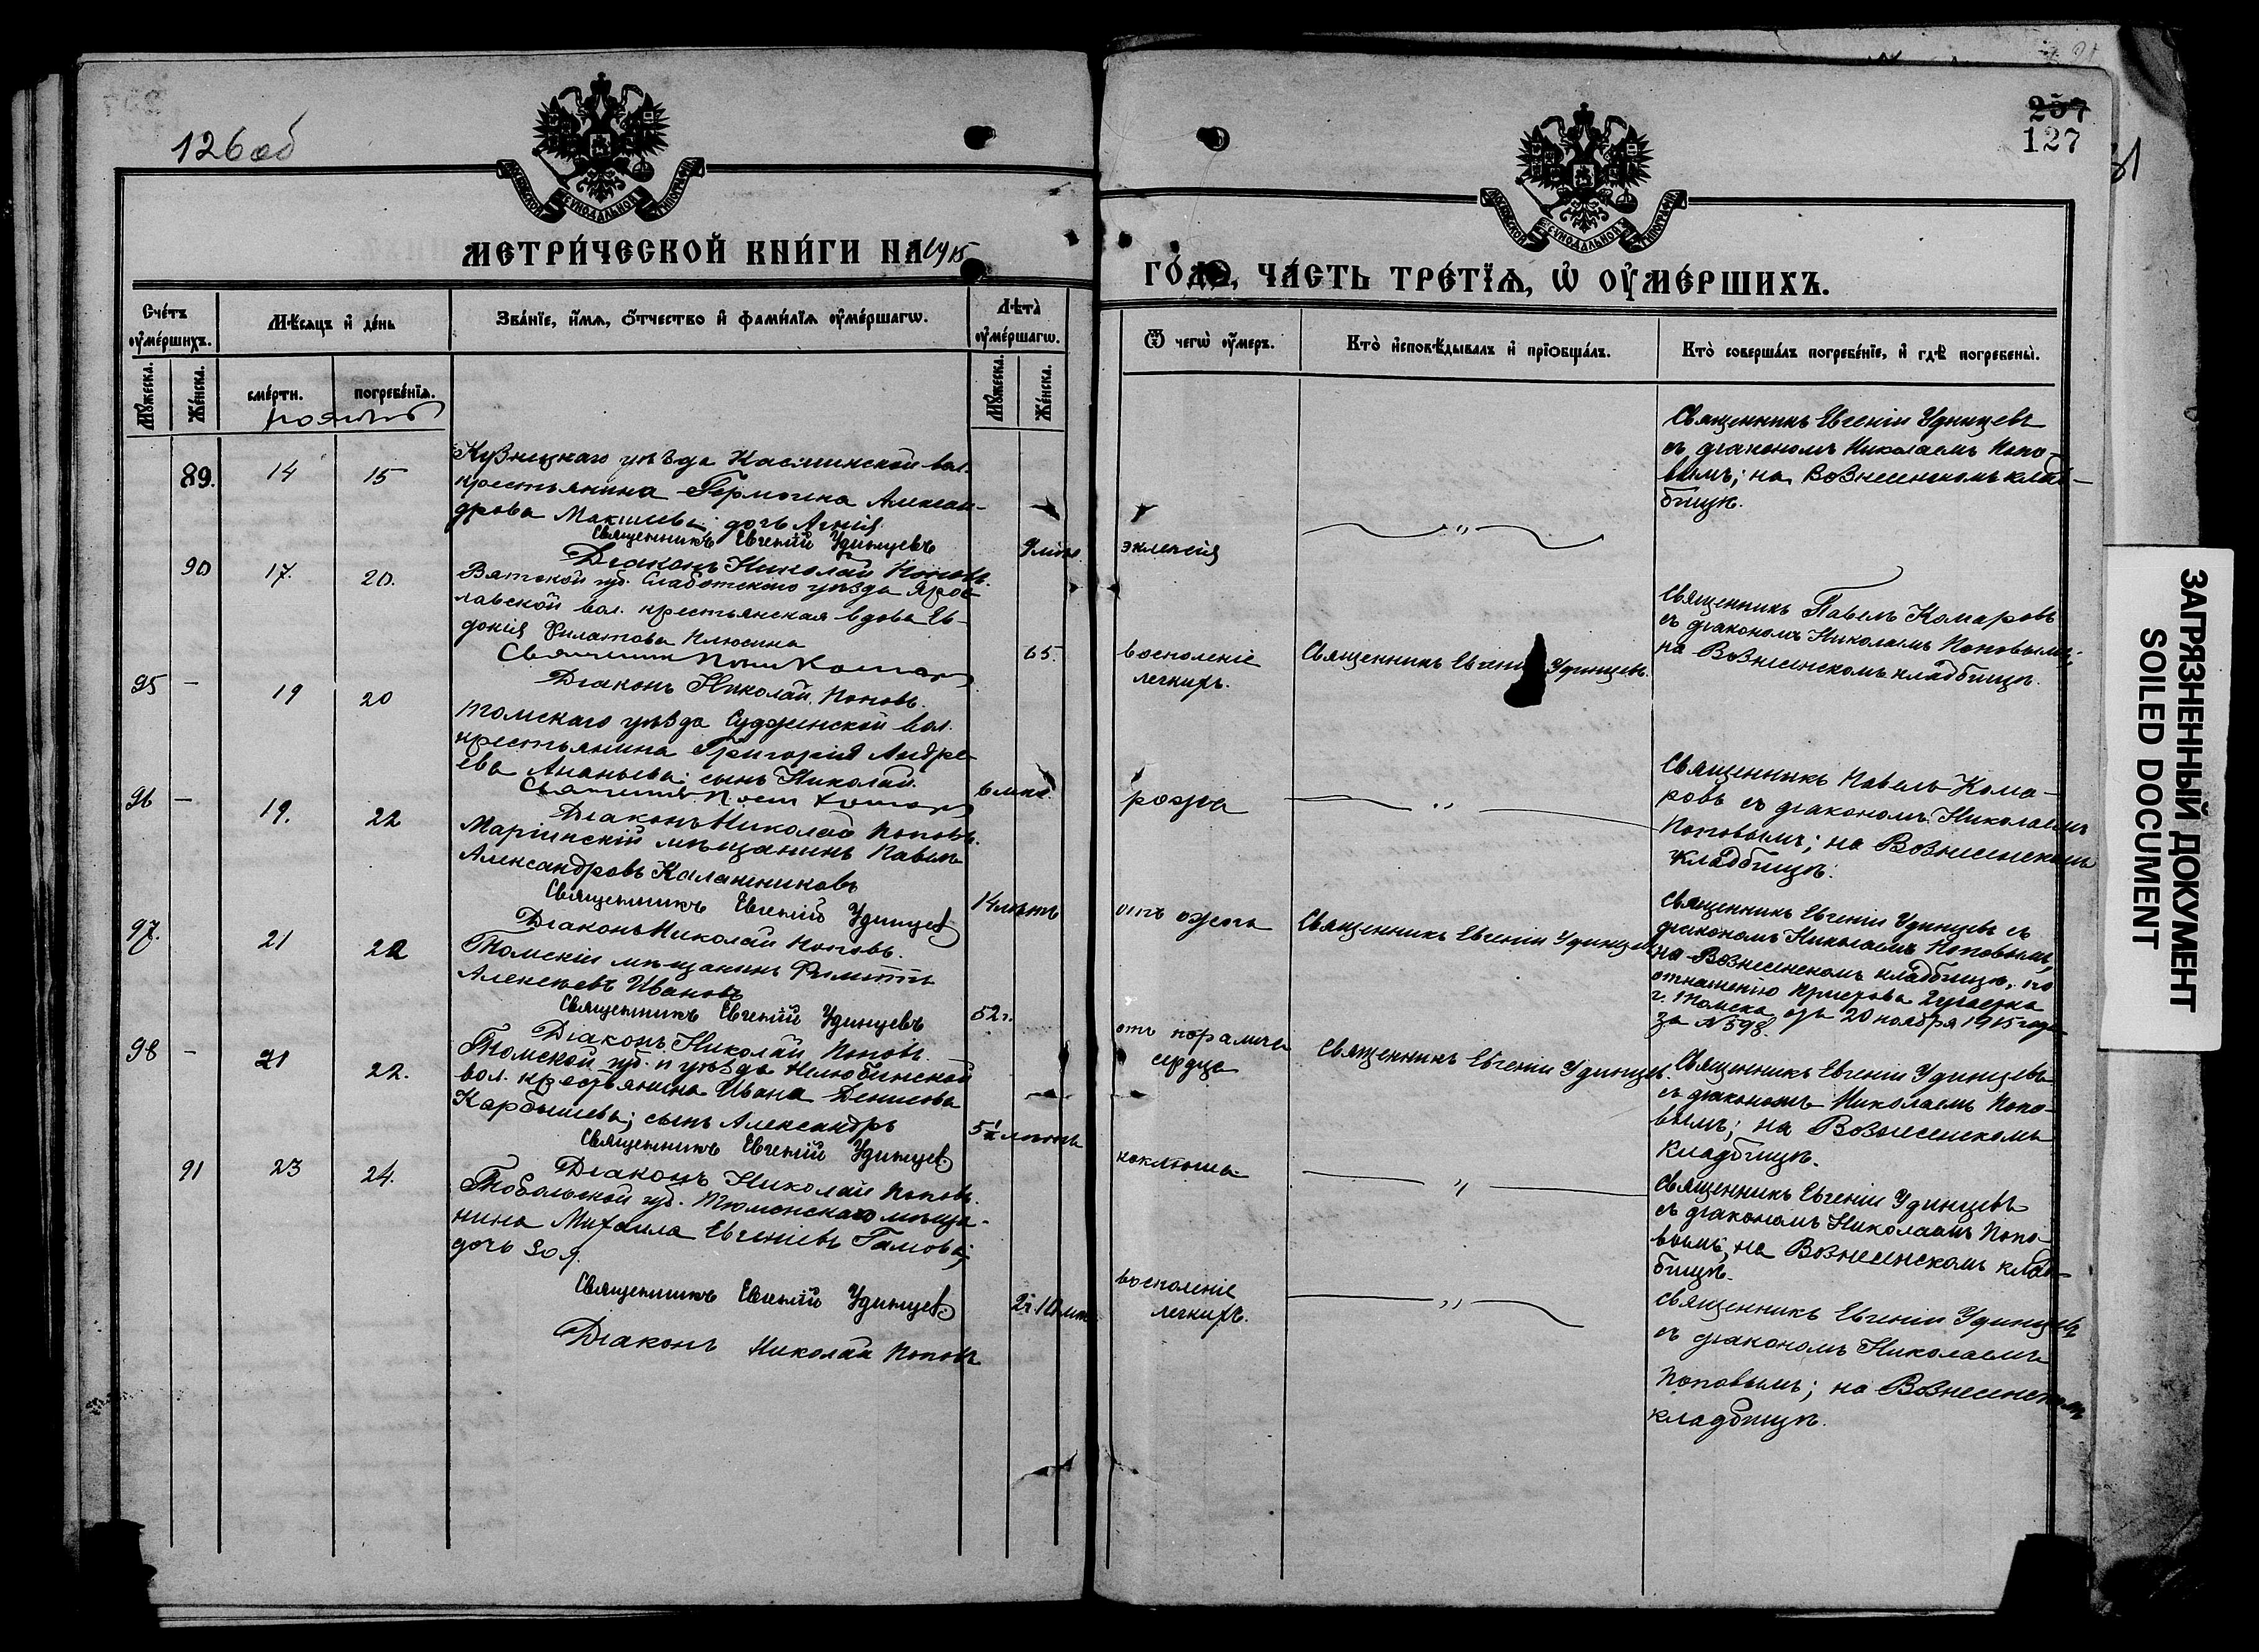 126 об
257
127
МОСКОВСКОЙ СѴНОДАЛЬНОЙ ТИПОГРАФІИ
МОСКОВСКОЙ СѴНОДАЛЬНОЙ ТИПОГРАФІИ
МЕТРИ́ЧЕСКОЙ КНИ́ГИ НА 1915
ГО́ДЪ, ЧА́СТЬ ТРЕ́ТЇѦ, Ѡ҆ ОУ҆МЕ́РШИХЪ.
Сче́тъ оу҆ме́ршихъ.
Мѣ́сяцъ и҆ де́нь
Зва́нїе, и҆́мя, ѻ҆́тчество и҆ фами́лїя оу҆ме́ршагѡ.
Лѣта̀ оу҆ме́ршагѡ.
Ѿ чегѡ̀ оу҆́меръ.
Кто̀ и҆сповѣ́дывалъ и҆ прїѡбща́лъ.
Кто̀ соверша́лъ погребе́нїе, и҆ гдѣ̀ погребены̀.
Мꙋ́жеска.
Же́нска.
сме́рти.
погребе́нїѧ.
Мꙋ́жеска.
Же́нска.
ноябрь
89.
14
15
Кузнецкаго уѣзда Касьминской вол.
крестьянина Гермогена Алексан-
дрова Макшеева; дочь Агнія
Священникъ Евгеній Удинцевъ
Діаконъ Николай Поповъ.
9 мѣс.
эклемсія
"
Священникъ Евгеній Удинцевъ
съ діакономъ Николаемъ Попо-
вымъ; на Вознесенскомъ клад-
бищѣ.
90
17.
20.
Вятской губ. Слабодскаго уѣзда Яро-
славской вол. крестьянская вдова Ев-
докія Филатова Клюсина
Священникъ Павелъ Комаровъ
Діаконъ Николай Поповъ.
65.
воспаленіе
легкихъ.
Священникъ Евгеній Удинцевъ.
Священникъ Павелъ Комаровъ
съ діакономъ Николаемъ Поповымъ;
на Вознесенскомъ кладбищѣ.
95
—
19
20
Томскаго уѣзда Судженской вол.
крестьянина Григорія Андре-
ева Ананьева; сынъ Николай.
Священникъ Павелъ Комаровъ
Діаконъ Николай Поповъ.
6 мѣс.
рожа
"
Священникъ Павелъ Кома-
ровъ съ діакономъ Николаемъ
Поповымъ; на Вознесенскомъ
кладбищѣ.
96
—
19.
22
Маріинскій мѣщанинъ Павелъ
Александровъ Калашниковъ
Священникъ Евгеній Удинцевъ
Діаконъ Николай Поповъ.
14 лѣтъ
отъ ожога
Священникъ Евгеній Удинцевъ
Священникъ Евгеній Удинцевъ съ
діакономъ Николаемъ Поповымъ,
на Вознесенскомъ кладбищѣ, по
отношенію Пристава 2 участка
г. Томска отъ 20 ноября 1915 года
за № 598.
97.
21
22
Томскій мѣщанинъ
Алексѣевъ Ивановъ
Священникъ Евгеній Удинцевъ
Діаконъ Николай Поповъ.
52 г.
отъ паралича
сердца
Священникъ Евгеній Удинцевъ.
Священникъ Евгеній Удинцевъ
съ діакономъ Николаемъ Попо-
вымъ; на Вознесенскомъ
кладбищѣ.
98
—
21
22.
Томской губ. и уѣзда Нелюбинской
вол. крестьянина Ивана Денисова
Карбышева; сынъ Александръ
Священникъ Евгеній Удинцевъ
Діаконъ Николай Поповъ.
5½ лѣтъ
коклюша
"
Священникъ Евгеній Удинцевъ
съ діакономъ Николаемъ Попо-
вымъ; на Вознесенскомъ клад-
бищѣ.
91
23
24.
Тобольской губ. Тюменскаго мѣща-
нина Михаила Евгеніевъ Гамова;
дочь Зоя.
Священникъ Евгеній Удинцевъ
Діаконъ Николай Поповъ
2 г. 10 мѣс.
воспаленіе
легкихъ.
"
Священникъ Евгеній Удинцевъ
съ діакономъ Николаемъ
Поповымъ; на Вознесенскомъ
кладбищѣ.
ЗАГРЯЗНЕННЫЙ ДОКУМЕНТ
SOILED DOCUMENT